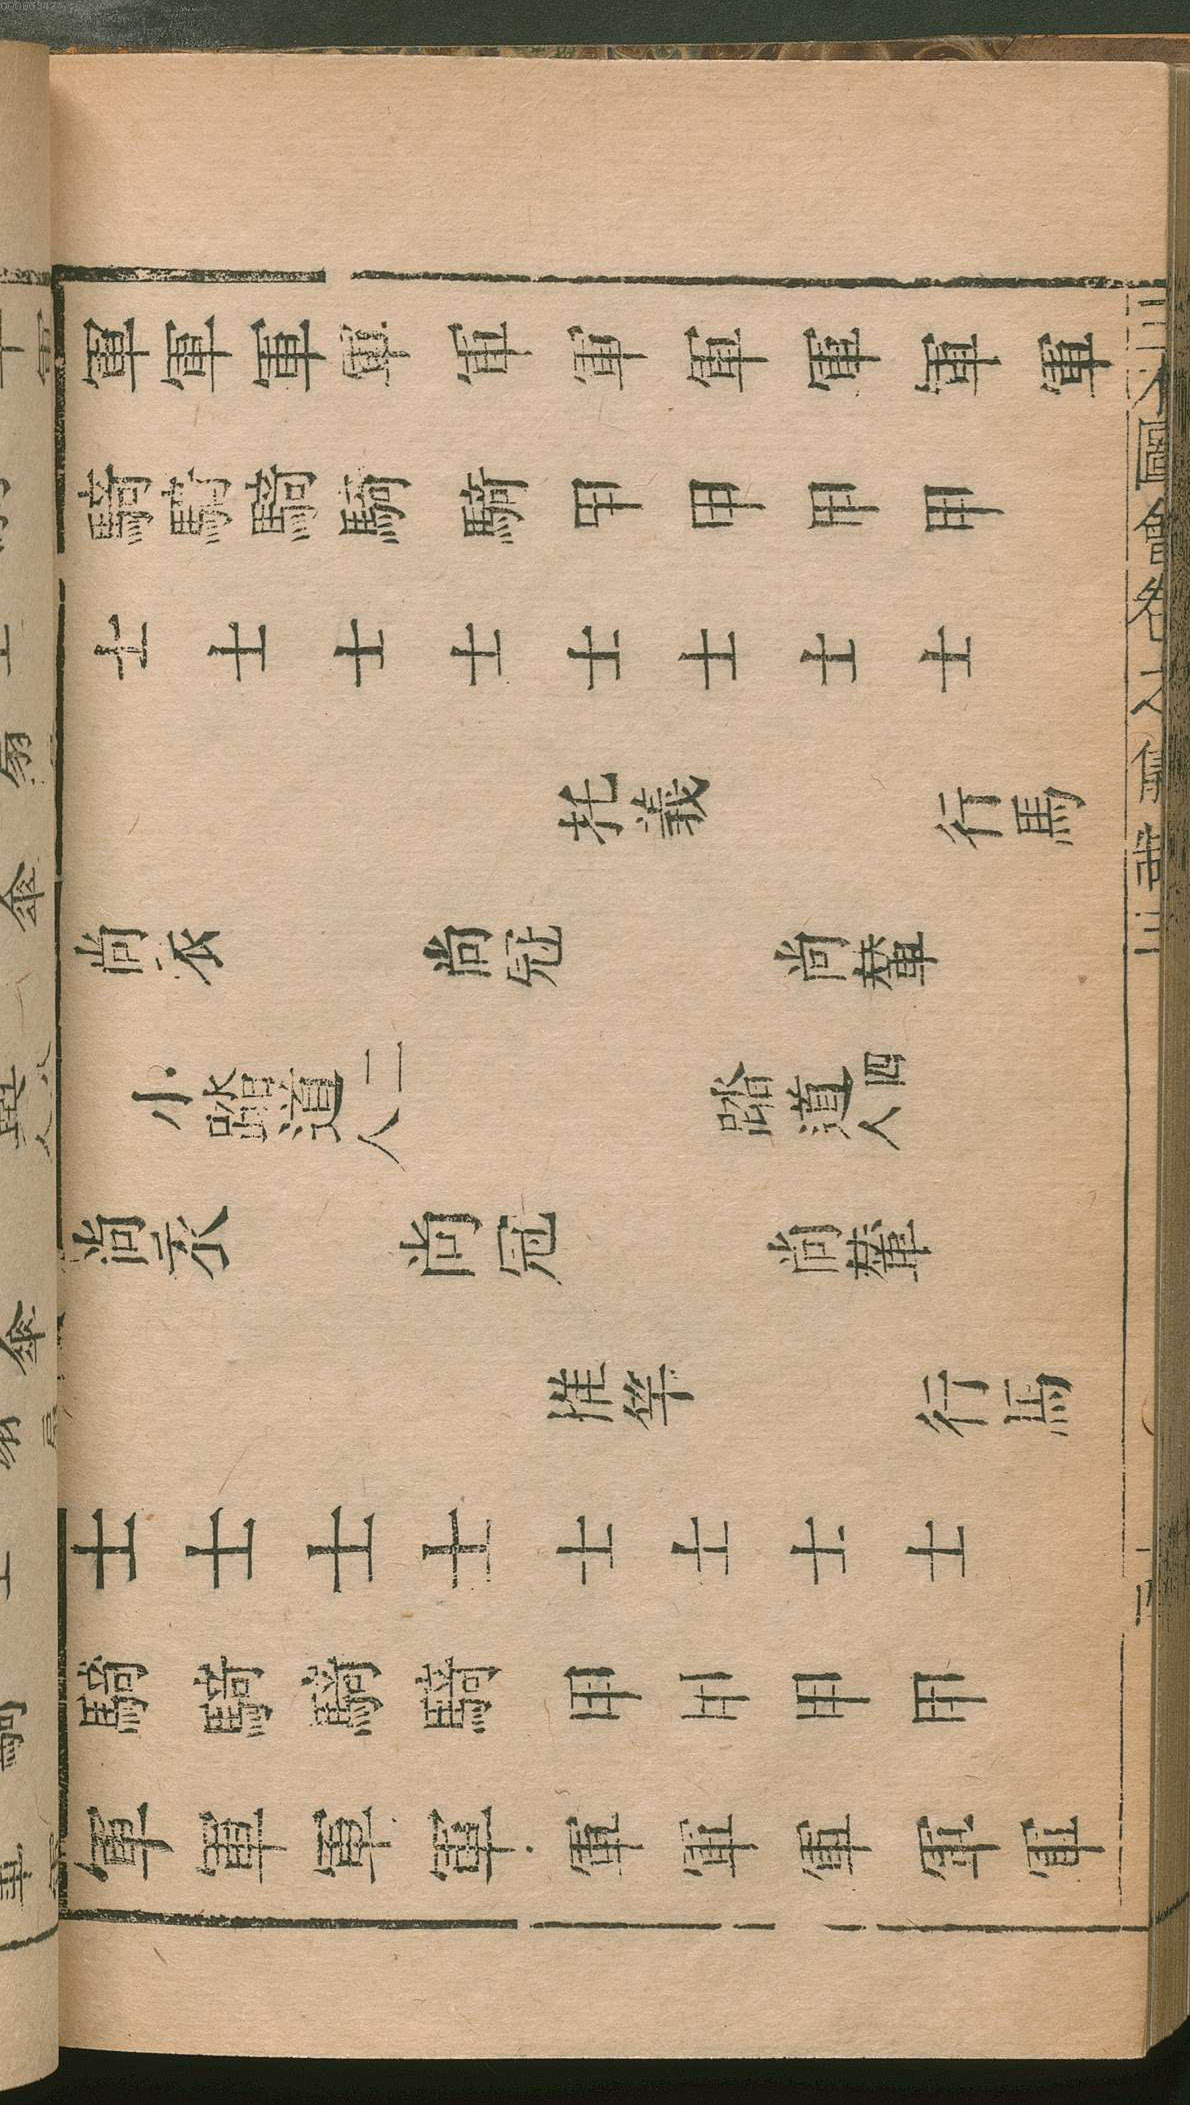 三才圖會卷之儀制三
軍 軍 軍 軍 軍 軍 軍 軍 軍 軍
騎 騎 騎 騎 騎 甲 甲 甲 甲
士 士 士 士 士 士 士 士
托義 行馬
尚衣 尚冠 尚輦
小踏道二人 踏道四人
尚衣 尚冠 尚輦
推竿 行馬
士 士 士 士 士 士 士 士
騎 騎 騎 騎 甲 甲 甲 甲
軍 軍 軍 軍 軍 軍 軍 軍 軍